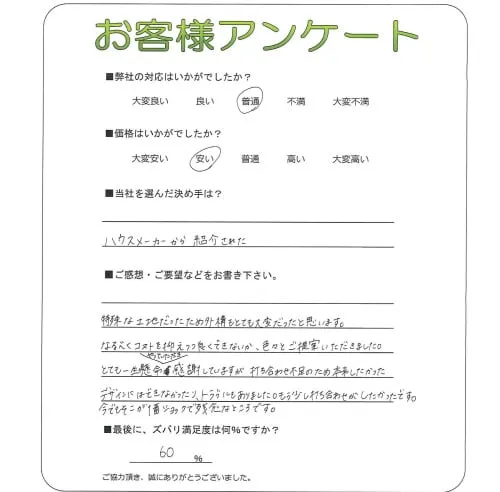 お客様アンケート
■弊社の対応はいかがでしたか？
大変良い 良い 普通 不満 大変不満
■価格はいかがでしたか？
大変安い 安い 普通 高い 大変高い
■当社を選んだ決め手は？
ハウスメーカーから紹介された
■ご感想・ご要望などをお書き下さい。
特殊な土地だったため外構もとても大変だったと思います。
なるべくコストを抑えつつ良くできないか、色々とご提案いただきました。
やっていただき
とても一生懸命 感謝していますが 打ち合わせ不足のため 本来したかった
デザインにはできなかったり、トラブルもありました。もう少し打ち合わせがしたかったです。
今でもそこが なところです。
■最後に、ズバリ満足度は何%ですか？
60 %
ご協力頂き、誠にありがとうございました。